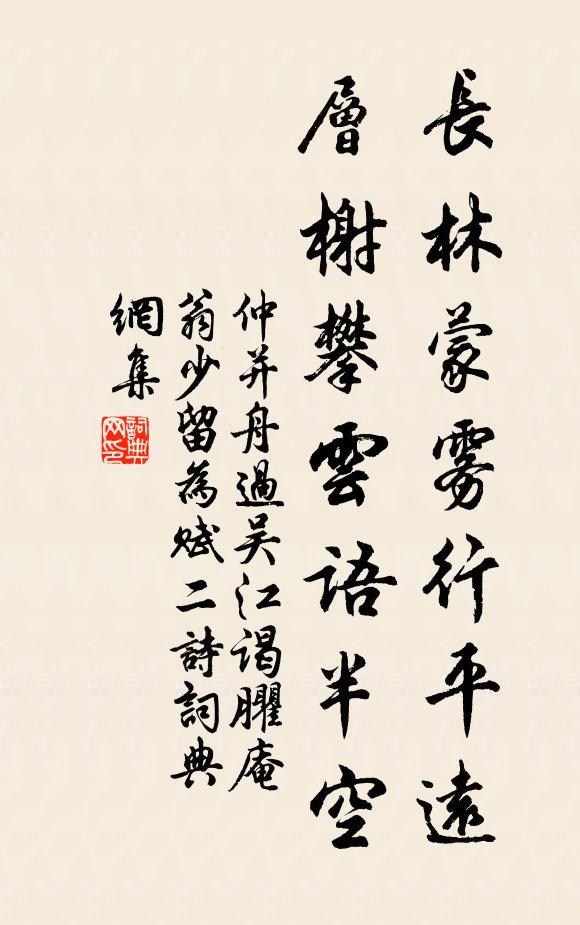 長林蒙雾行平遠
層榭攀雲語半空
仲并舟過吴江谒臞庵
翁少留為赋二詩詞典
網集
詞典
网印